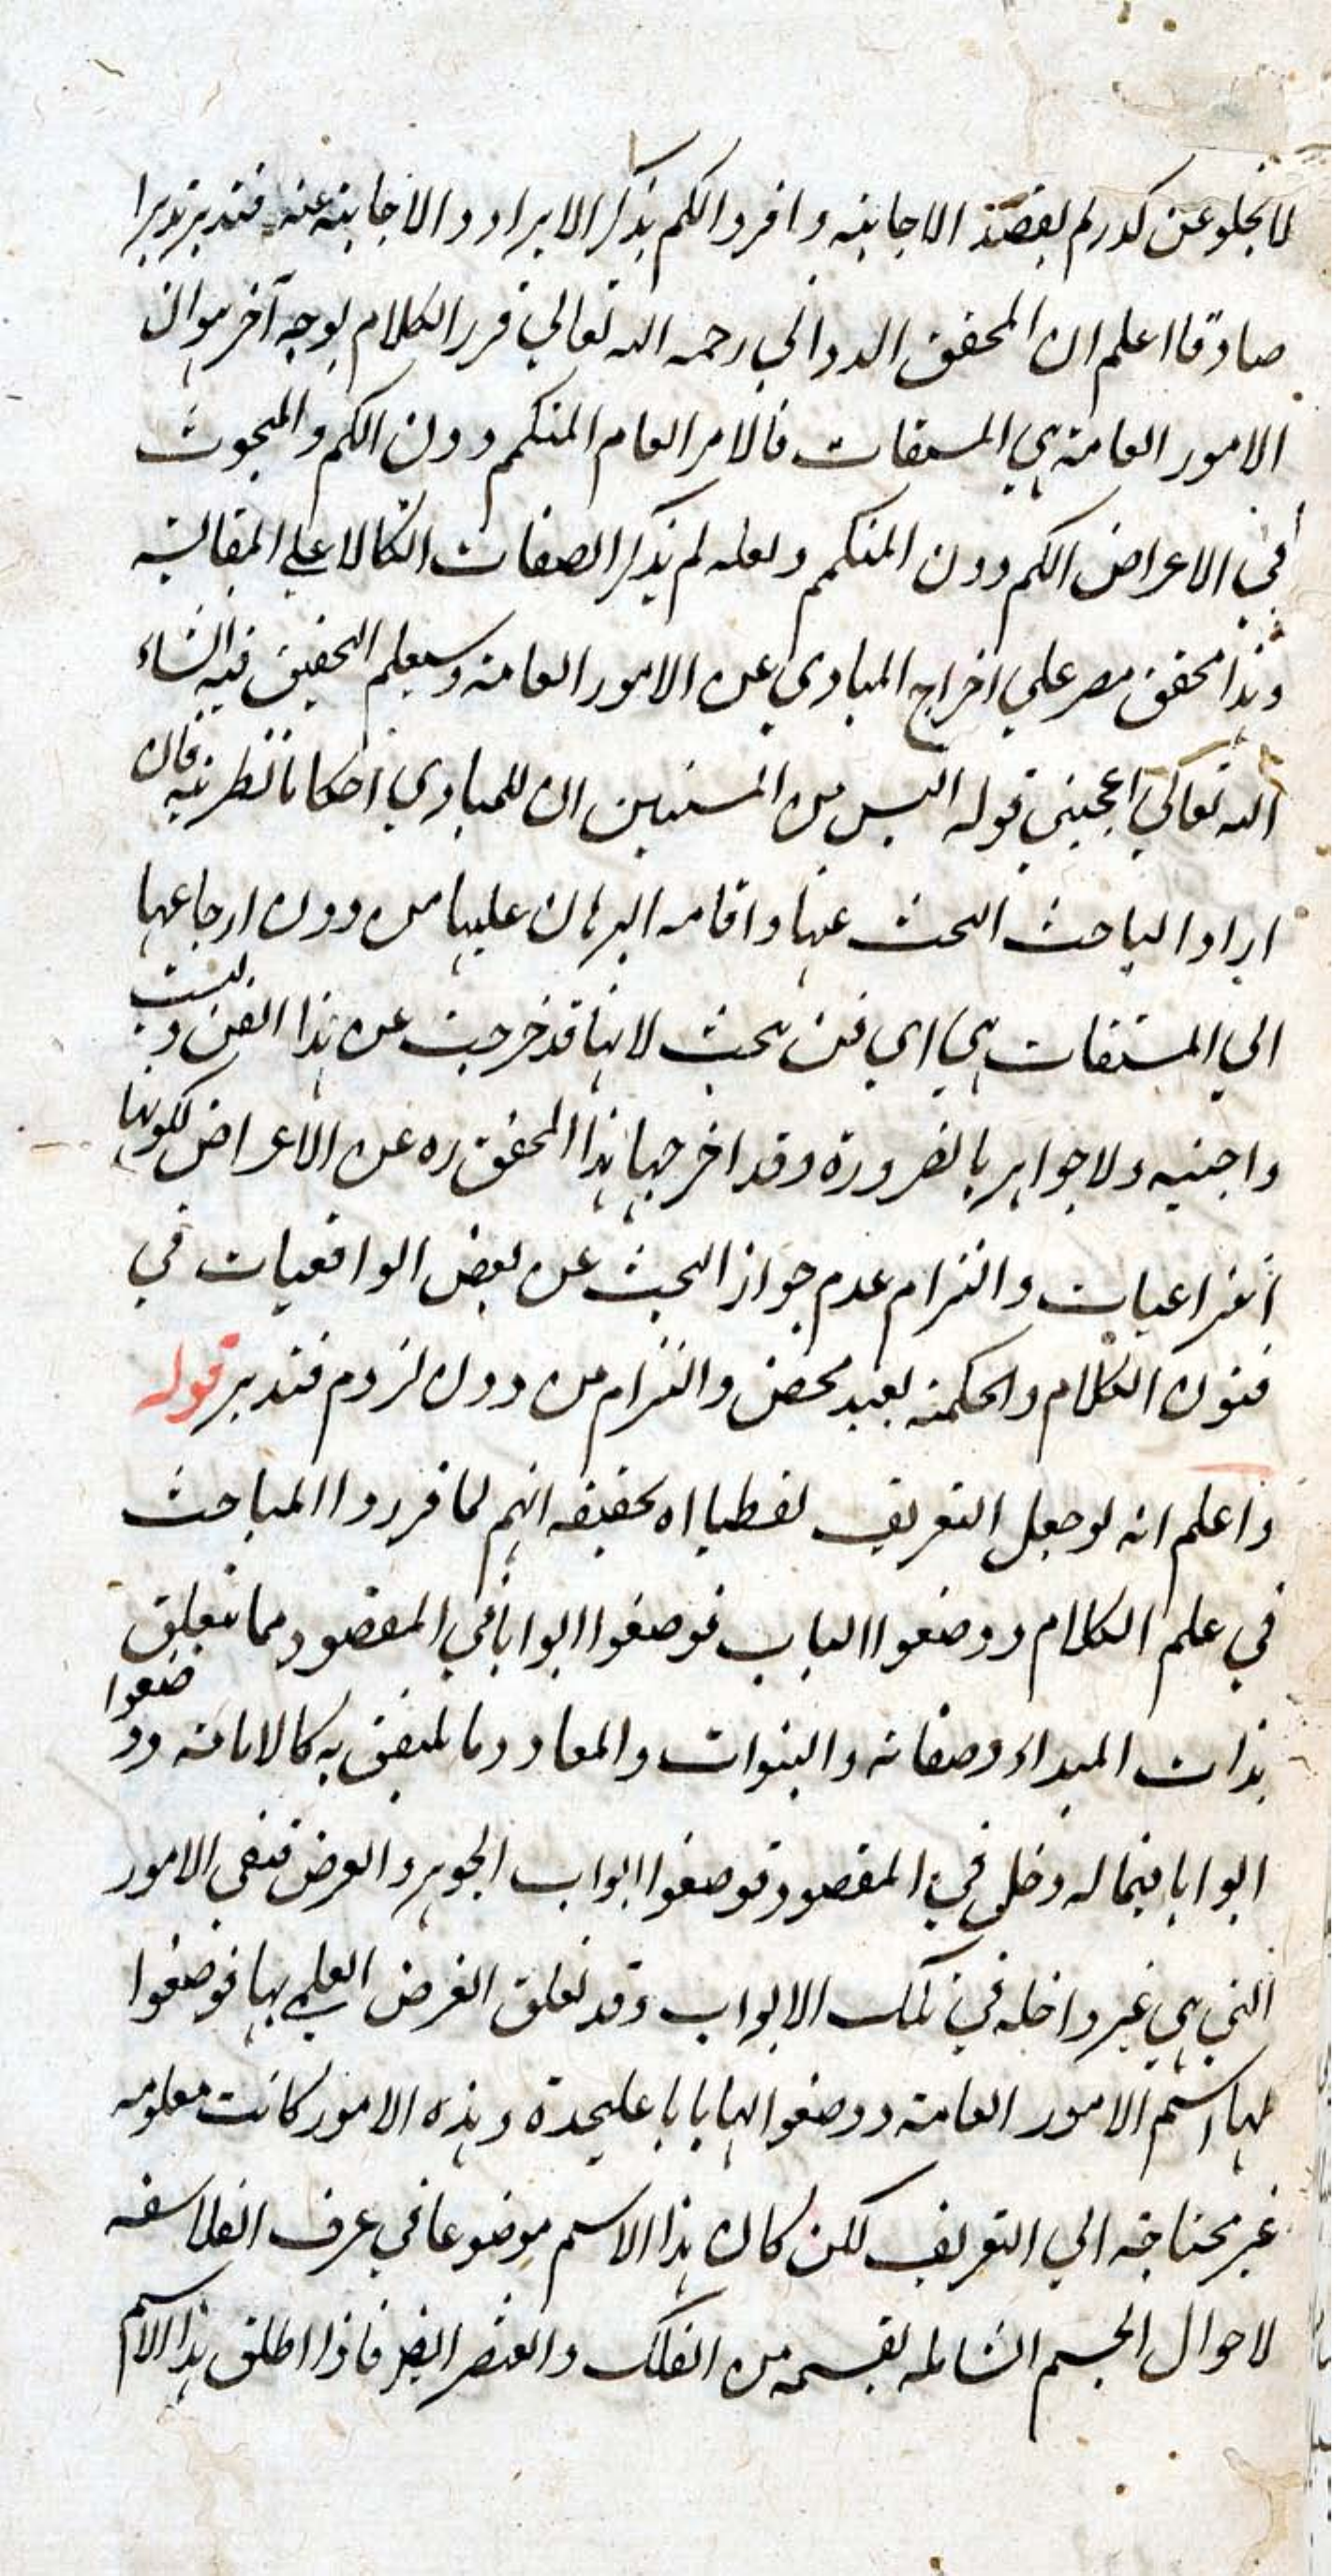 لا يخلو عن كدر لم يقصد الاجابة وافردا لكم بذكر الايراد والاجابة عنه فتدبر تدبرا
صادقا اعلم ان المحقق الدواني رحمه الله تعالي قرر الكلام بوجه آخر هو ان
الامور العامة هي المشتقات فالامر العام المتكمم دون الكم والمبحوث
في الاعراض الكم دون المتكمم ولعله لم يذكر الصفات اتكالا علي المقايسة
وهذا محقق مصر علي اخراج المبادي عن الامور العامة وسيعلم التحقيق فيه انشاء
الله تعالي اعجبني قوله اليس من المستبين ان للمبادي احكاما نظرية فان
اراد الباحث البحث عنها واقامه البرهان عليها من دون ارجاعها
الي المشتقات هي اي فن يبحث لانها قد خرجت عن هذا الفن وليست
واجبيه ولا جواهر بالضرورة وقد اخرجها هذا المحقق ره عن الاعراض لكونها
انتزاعيات والتزام عدم جواز البحث عن بعض الواقعيات في
فنون الكلام والحكمة بعيد محض والتزام من دون لزوم فتدبر قوله
واعلم انه لو جعل التعريف لفظيا اه تحقيقه انهم لما قرروا المباحث
في علم الكلام ووضعوا الباب فوضعوا ابوابا في المقصود مما يتعلق
بذات المبداء وصفاته والنبوات والمعاد وما يلتفق به كالامامة ووضعوا
ابوابا فيما له دخل في المقصود فوضعوا ابواب الجوهر والعرض فبقي الامور
التي هي غير داخله في تلك الابواب وقد تعلق الغرض العلمي بها فوضعوا
لها اسم الامور العامة ووضعوا لها بابا عليحدة وهذه الامور كانت معلومه
غير محتاجة الي التعريف لكن كان هذا الاسم موضوعا في عرف الفلاسفه
لاحوال الجسم الشامله لقسميه من الفلك والعنصر ايضا فاذا اطلق هذا الاسم